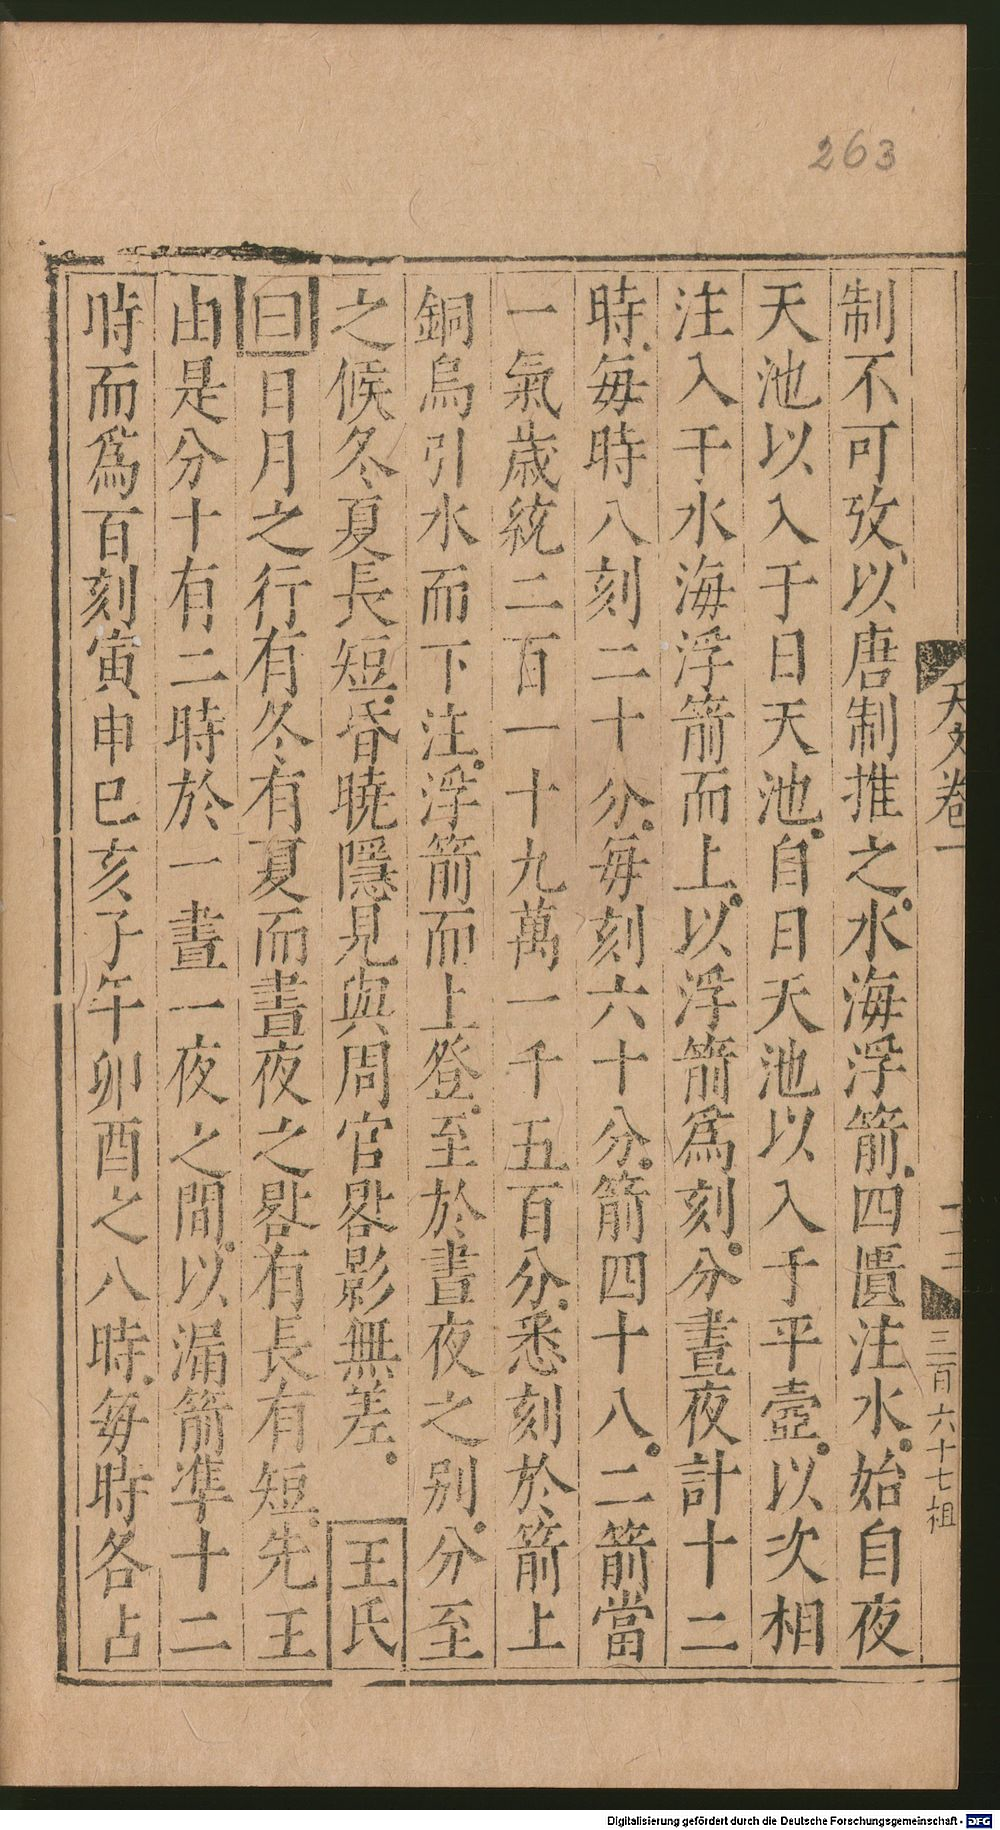 263
天文卷一
二十三
三百六十七 祖
制不可攷以唐制推之水海浮箭四匱注水始自夜
天池以入于日天池自日天池以入于平壺以次相
注入于水海浮箭而上以浮箭爲刻分晝夜計十二
時每時八刻二十分每刻六十分箭四十八二箭當
一氣歲統二百一十九萬一千五百分悉刻於箭上
銅烏引水而下注浮箭而上登至於晝夜之别分至
之候冬夏長短昏曉隱見與周官晷影無差 王氏
曰日月之行有冬有夏而晝夜之晷有長有短先王
由是分十有二時於一晝一夜之間以漏箭準十二
時而爲百刻寅申巳亥子午卯酉之八時每時各占
Digitalisierung gefördert durch die Deutsche Forschungsgemeinschaft - DFG